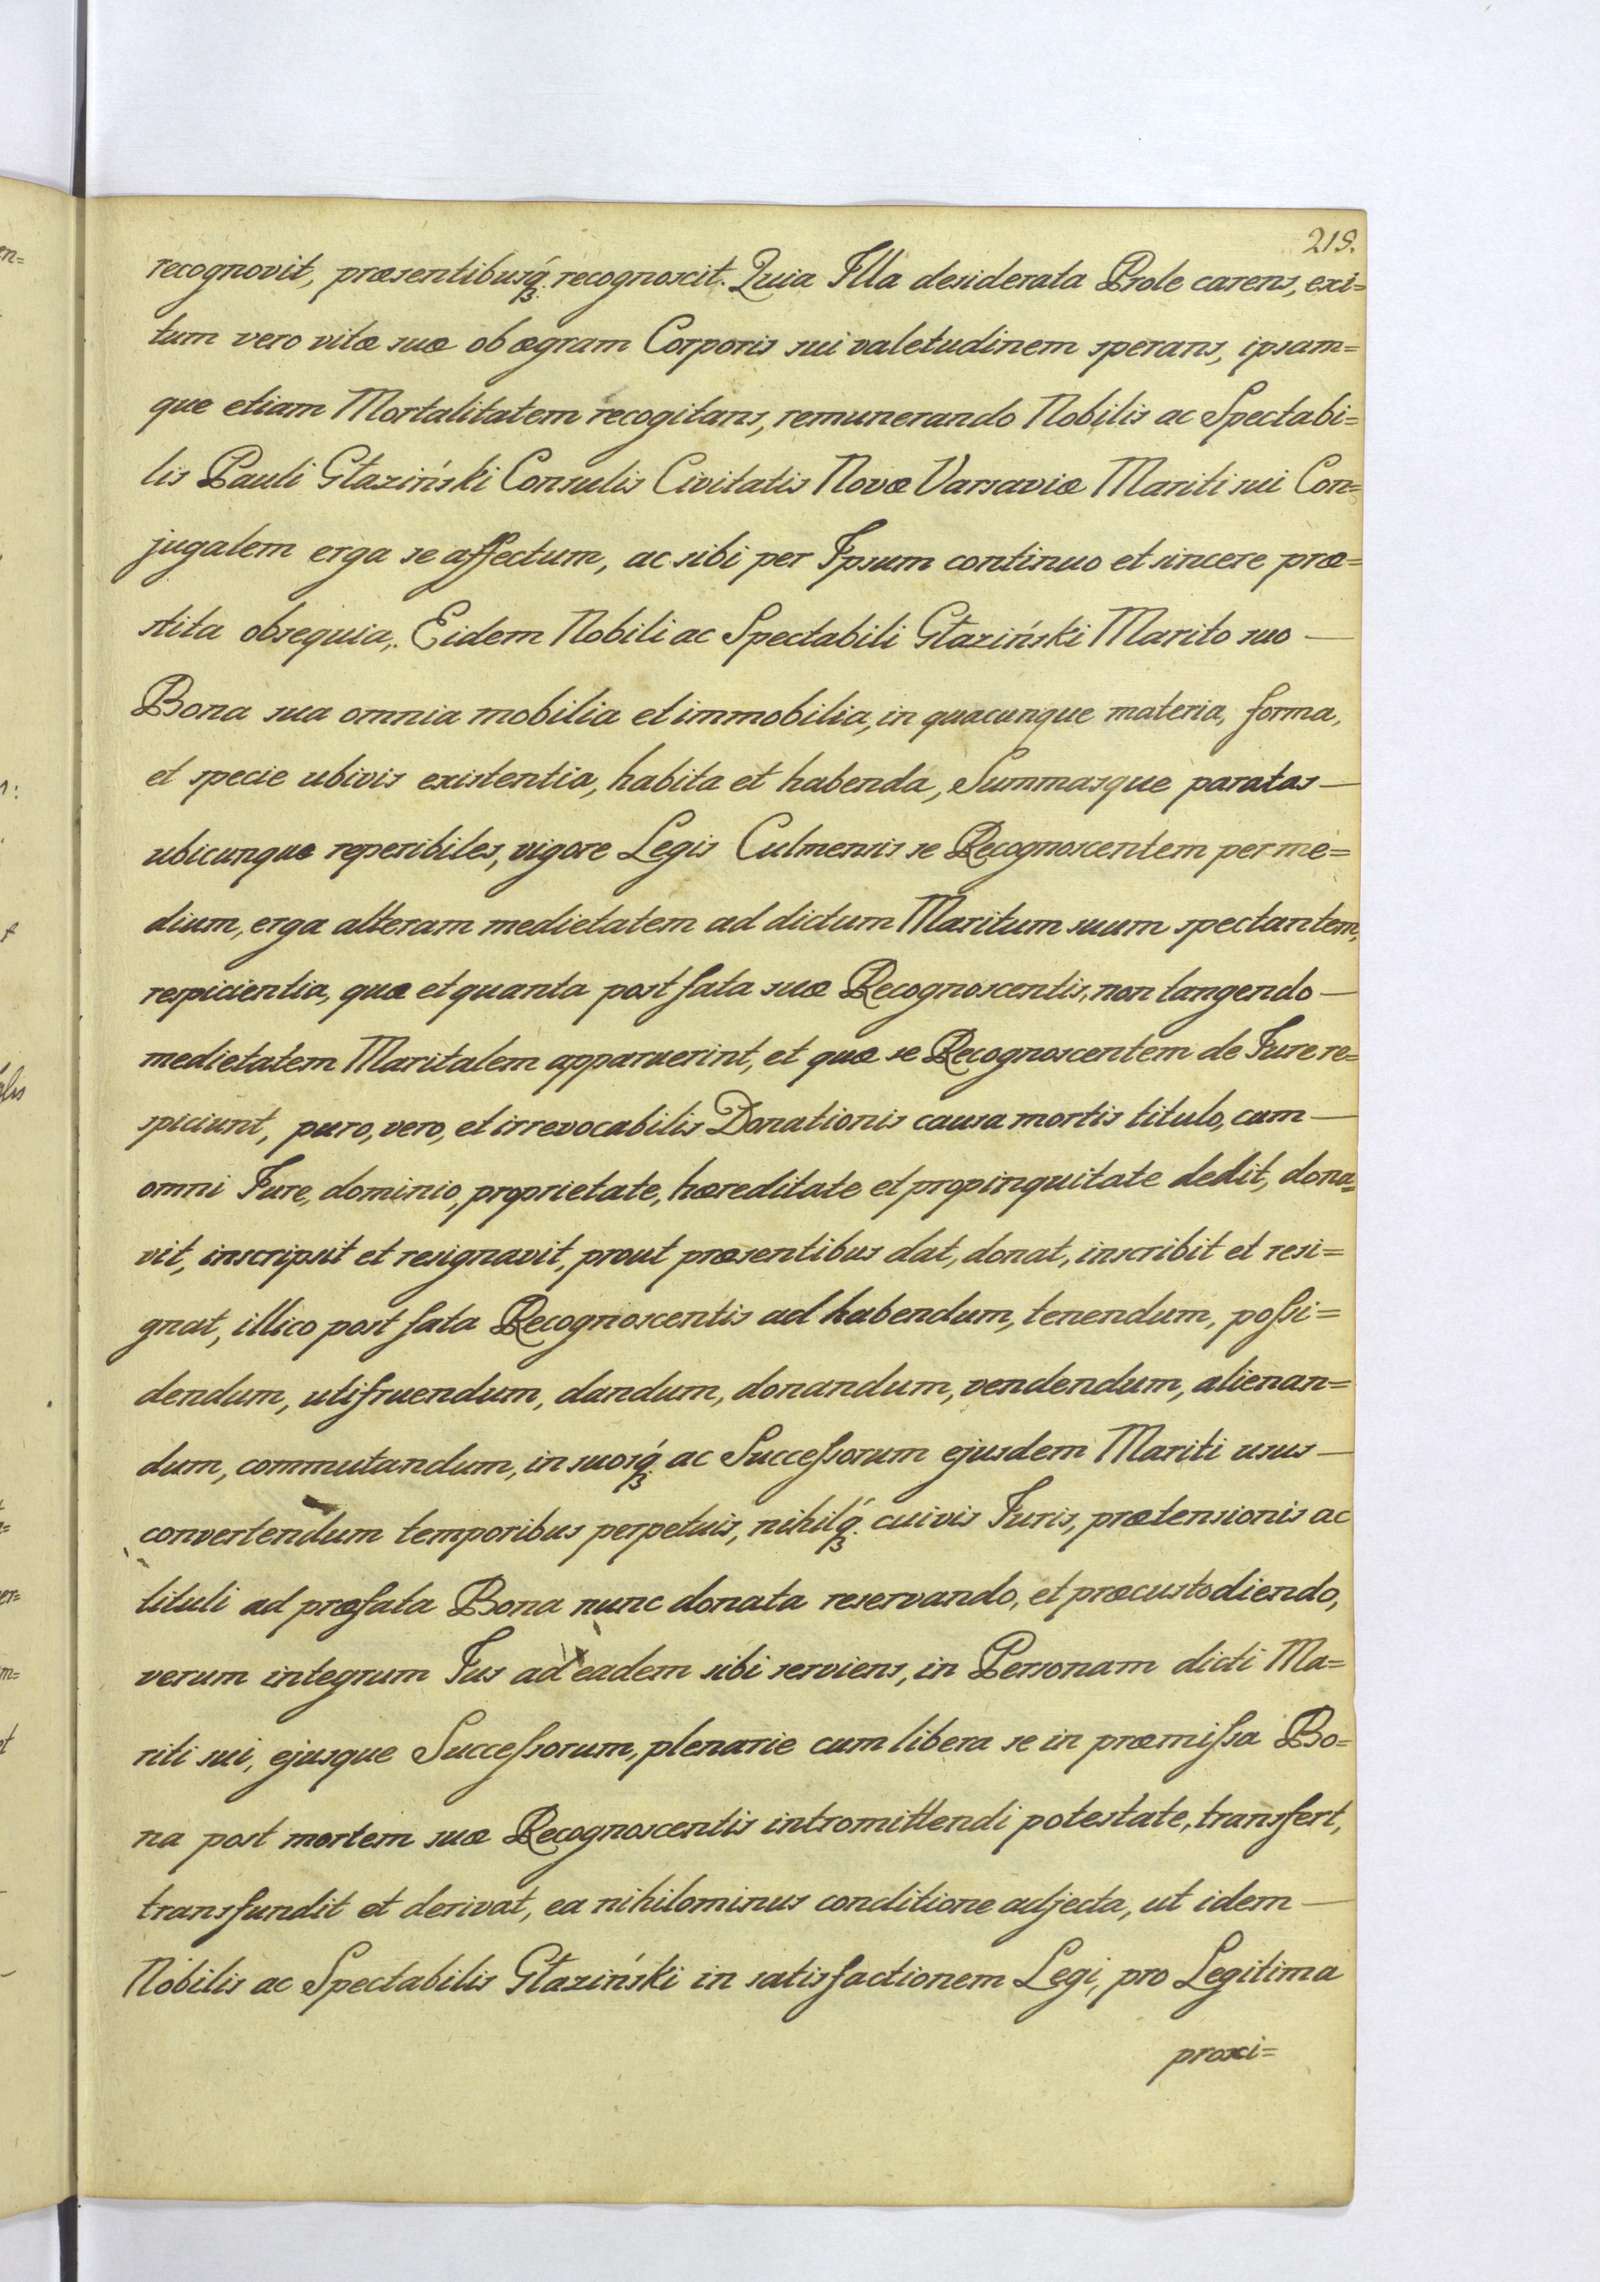 219.
recognovit, præsentibusq́ꝫ recognoscit. Quia Illa desiderata Prole carens, exi=
tum vero vitæ suæ ob ægram Corporis sui valetudinem sperans, ipsam=
que etiam Mortalitatem recogitans, remunerando Nobilis ac Spectabi=
lis Pauli Głaziński Consulis Civitatis Novæ Varsaviæ Mariti sui Con=
jugalem erga se affectum, ac sibi per Ipsum continuo et sincere præ=
stita obsequia, Eidem Nobili ac Spectabili Głaziński Marito suo —
Bona sua omnia mobilia et immobilia, in quacunque materia, forma,
et specie ubivis existentia, habita et habenda, Summasque paratas —
ubicunque reperibiles, vigore Legis Culmensis se Recognoscentem per me=
dium, erga alteram medietatem ad dictum Maritum suum spectantem,
respicientia, quæ et quanta post fata suæ Recognoscentis, non tangendo —
medietatem Maritalem apparuerint, et quæ se Recognoscentem de Jure re=
spiciunt, puro, vero, et irrevocabilis Donationis causa mortis titulo, cum —
omni Jure, dominio, proprietate, hæreditate et propinquitate dedit, dona=
vit, inscripsit et resignavit, prout præsentibus dat, donat, inscribit et resi=
gnat, illico post fata Recognoscentis ad habendum, tenendum, poſsi=
dendum, utifruendum, dandum, donandum, vendendum, alienan=
dum, commutandum, in suosq́ꝫ ac Succeſsorum ejusdem Mariti usus —
convertendum temporibus perpetuis, nihilq́ꝫ cuivis Juris, prætensionis ac
tituli ad præfata Bona nunc donata reservando, et præcustodiendo,
verum integrum Jus ad eadem sibi serviens, in Personam dicti Ma=
riti sui, ejusque Succeſsorum, plenarie cum libera se in præmiſsa Bo=
na post mortem suæ Recognoscentis intromittendi potestate, transfert,
transfundit et derivat, ea nihilominus conditione adjecta, ut idem —
Nobilis ac Spectabilis Głaziński in satisfactionem Legi, pro Legitima
proxi=